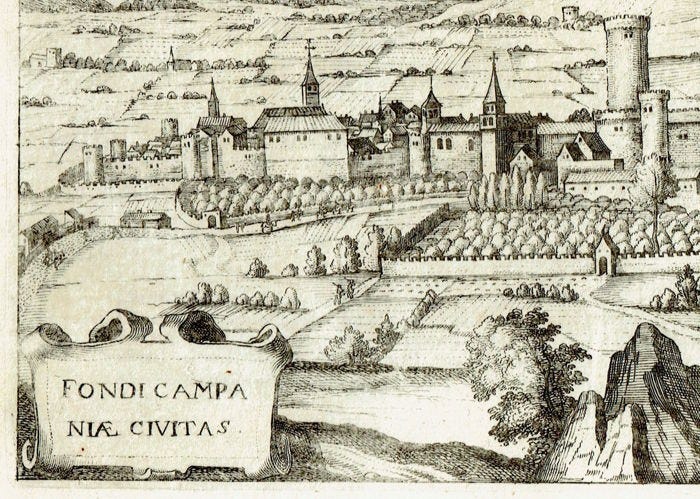 FONDI CAMPA
NIÆ CIVITAS.